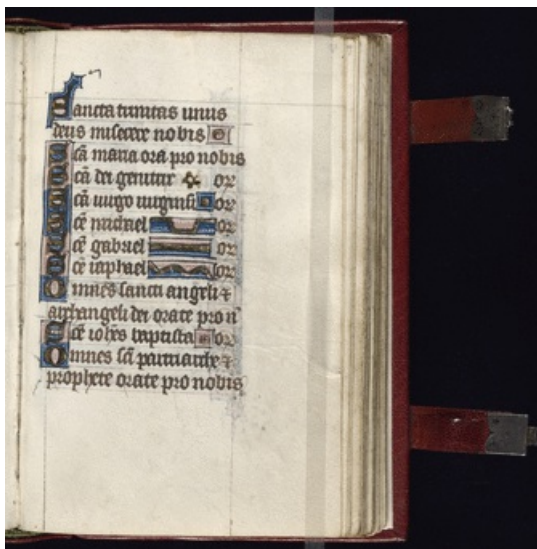 Sancta trinitas unus
deus miserere nobis
Sca maria ora pro nobis
Sca dei genitrix or
Sca uirgo uirginu or
Sce michael or
Sce gabriel or
Sce raphael or
Omnes sancti angeli ⁊
archangeli dei orate pro n
Sce iohes baptista or
Omnes sci patriarche ⁊
prophete orate pro nobis